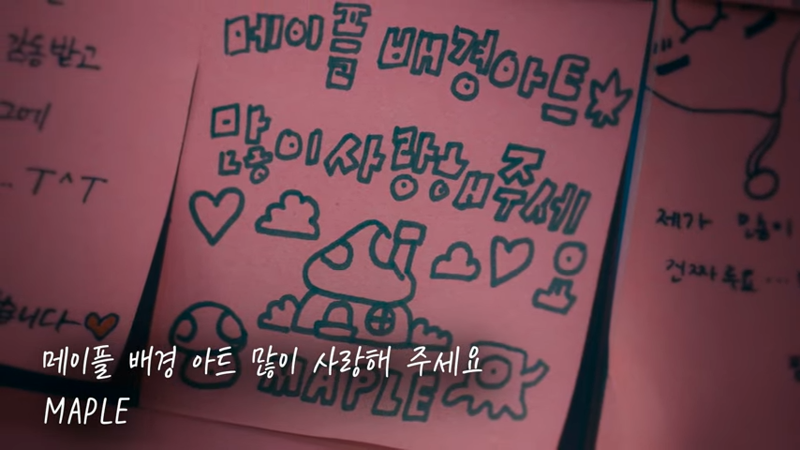 감동받고
그에
... ㅜ^ㅜ
습니다
메이플 배경아트
많이사랑해주세
요
MAPLE
제가 많이
건짜루요...
메이플 배경 아트 많이 사랑해 주세요
MAPLE